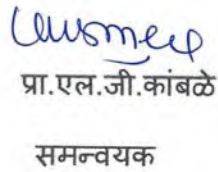 प्रा.एल.जी.कांबळे
समन्वयक